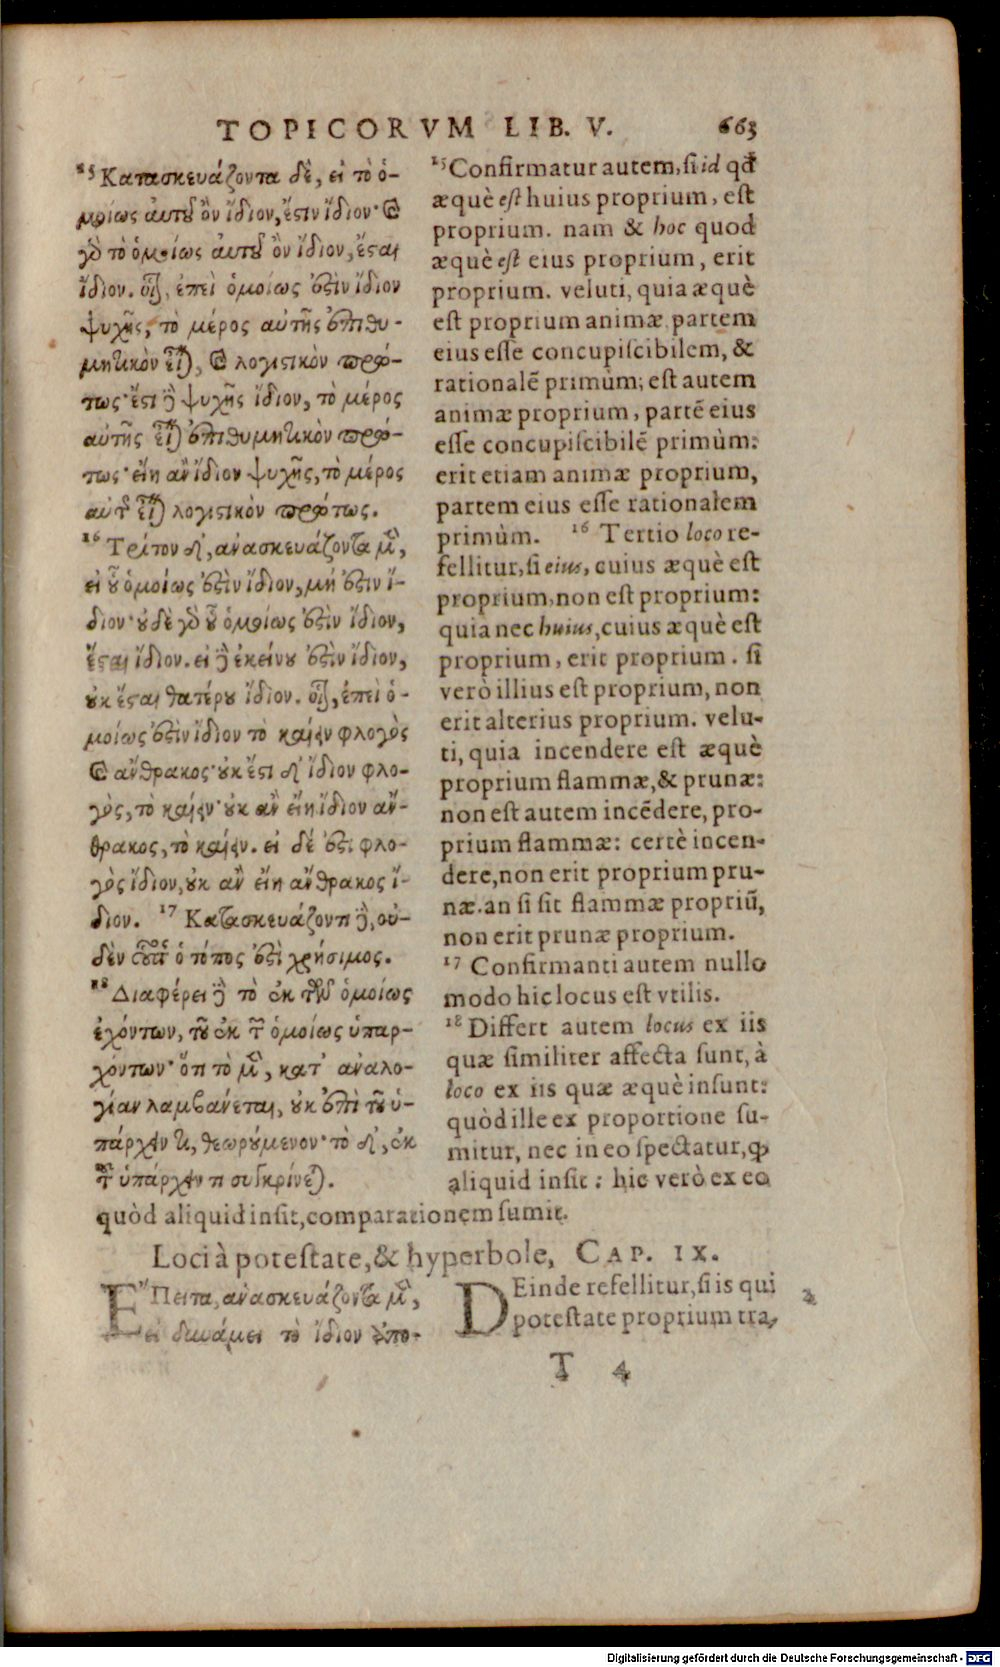 TOPICORVM LIB. V. 663
¹⁵Κατασκευάζοντα δὲ, εἰ τὸ ὁ-
μοίως αὐτοῦ ὂν ἴδιον, ἔστιν ἴδιον· καὶ
γὸ τὸ ὁμοίως αὐτοῦ ὂν ἴδιον, ἔσται
ἴδιον. οἷον, ἐπεὶ ὁμοίως ἐστὶν ἴδιον
ψυχῆς, τὸ μέρος αὐτῆς ἐπιθυ-
μητικὸν εἶναι, καὶ λογιστικὸν πρώ-
τως· ἔστι δὲ ψυχῆς ἴδιον, τὸ μέρος
αὐτῆς εἶναι ἐπιθυμητικὸν πρώ-
τως· εἴη ἂν ἴδιον ψυχῆς, τὸ μέρος
αὐτῆς εἶναι λογιστικὸν πρώτως.
¹⁶Τρίτον δ', ἀνασκευάζοντα μὲν,
εἰ οὗ ὁμοίως ἐστὶν ἴδιον, μή ἐστιν ἴ-
διον· οὐδὲ γὸ οὗ ὁμοίως ἐστὶν ἴδιον,
ἔσται ἴδιον. εἰ δὲ ἐκείνου ἐστὶν ἴδιον,
οὐκ ἔσται θατέρου ἴδιον. οἷον, ἐπεὶ ὁ-
μοίως ἐστὶν ἴδιον τὸ καίειν φλογὸς
καὶ ἄνθρακος· οὐκ ἔστι δ' ἴδιον φλο-
γὸς, τὸ καίειν· οὐκ ἂν εἴη ἴδιον ἄν-
θρακος, τὸ καίειν. εἰ δέ ἐστι φλο-
γὸς ἴδιον, οὐκ ἂν εἴη ἄνθρακος ἴ-
διον. ¹⁷ Κατασκευάζοντι δὲ, οὐ-
δὲν οὗτος ὁ τόπος ἐστὶ χρήσιμος.
¹⁸Διαφέρει δὲ τὸ ἐκ τῶν ὁμοίως
ἐχόντων, τοῦ ἐκ τῶν ὁμοίως ὑπαρ-
χόντων· ὅτι τὸ μὲν, κατ' ἀναλο-
γίαν λαμβάνεται, οὐκ ἐπὶ τοῦ ὑ-
πάρχειν τι, θεωρούμενον· τὸ δ', ἐκ
τοῦ ὑπάρχειν τι συγκρίνεται.
¹⁵Confirmatur autem, si id qđ
æquè est huius proprium, est
proprium. nam & hoc quod
æquè est eius proprium, erit
proprium. veluti, quia æquè
est proprium animæ partem
eius esse concupiscibilem, &
rationalẽ primùm; est autem
animæ proprium, partẽ eius
esse concupiscibilẽ primùm:
erit etiam animæ proprium,
partem eius esse rationalem
primùm. ¹⁶ Tertio loco re-
fellitur, si eius, cuius æquè est
proprium, non est proprium:
quia nec huius, cuius æquè est
proprium, erit proprium. si
verò illius est proprium, non
erit alterius proprium. velu-
ti, quia incendere est æquè
proprium flammæ, & prunæ:
non est autem incẽdere, pro-
prium flammæ: certè incen-
dere, non erit proprium pru-
næ. an si sit flammæ propriũ,
non erit prunæ proprium.
¹⁷ Confirmanti autem nullo
modo hic locus est vtilis.
¹⁸ Differt autem locus ex iis
quæ similiter affecta sunt, à
loco ex iis quæ æquè insunt:
quòd ille ex proportione su-
mitur, nec in eo spectatur, ꝙ
aliquid insit: hic verò ex eo
quòd aliquid insit, comparationem sumit.
Loci à potestate, & hyperbole, CAP. IX.
ΕΠειτα, ἀνασκευάζοντα μὲν,
εἰ δυνάμει τὸ ἴδιον ἀπο-
DEinde refellitur, si is qui
potestate proprium tra-
T 4
Digitalisierung gefördert durch die Deutsche Forschungsgemeinschaft - DFG